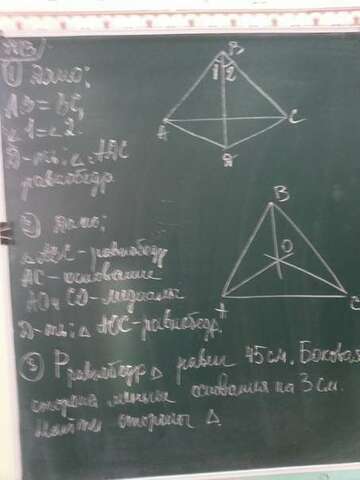 1) Дано:
AB = BC,
∠1 = ∠2
Д-ть: △ ADC
равнобедр
B
1 2
A
C
D
2) Дано:
△ABC - равнобедр
AC - основание
AO и CO - медианы
Д-ть: △ AOC - равнобедр.
B
O
A
C
3) P равнобедр △ равен 45 см. Боковая
сторона меньше основания на 3 см.
Найти стороны △